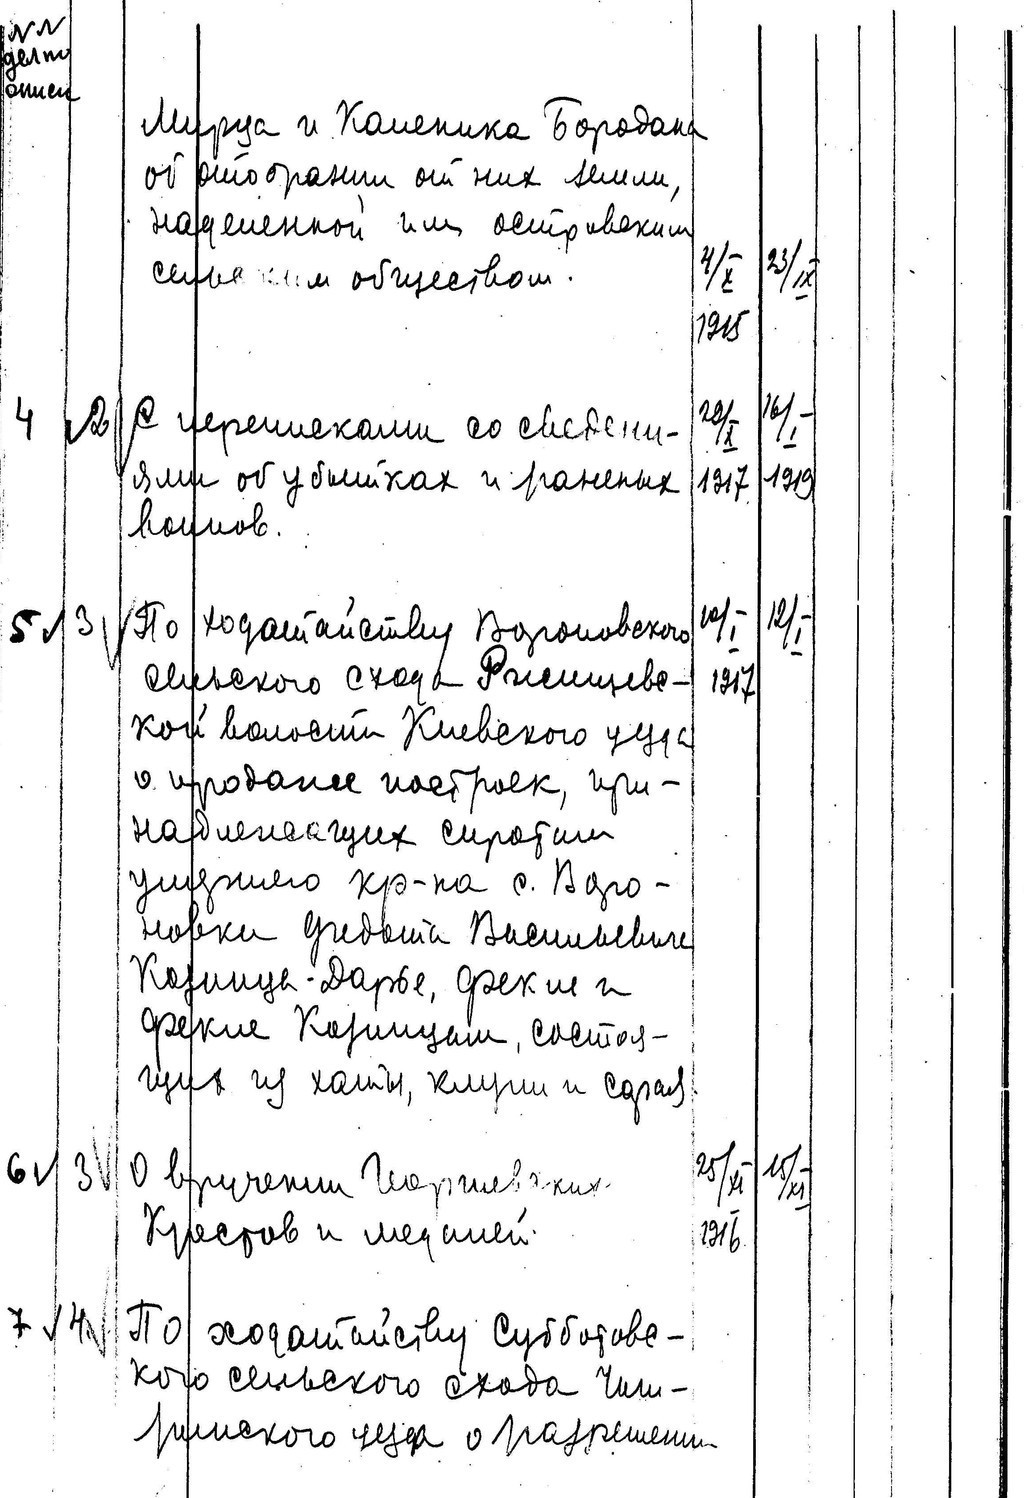 NN
дел по
описи
Мируа и Каленика Бородана
об отобрании от них земли,
наделенной им островским
сельским обществом. 4/X 23/IX
1915
4 2 С переписками со сведени- 29/X 16/I
ями об убытках и раненых 1917 1919
воинов.
5 3 По ходатайству Водяновского 10/I 12/I
сельского схода Ржищевс- 1917
кой волости Киевского уезда
о продаже построек, при-
надлежащих сиротам
умершего кр-на с. Водя-
новки Федота Васильевича
Козинца - Дарье, Фекле и
Фекле Козинцам, состоя-
щих из хаты, клуни и сарая.
6 3 О вручении Георгиевских 25/XI 15/XI
Крестов и медалей. 1916
7 4 По ходатайству Субботовс-
кого сельского схода Чиги-
ринского уезда о разрешении